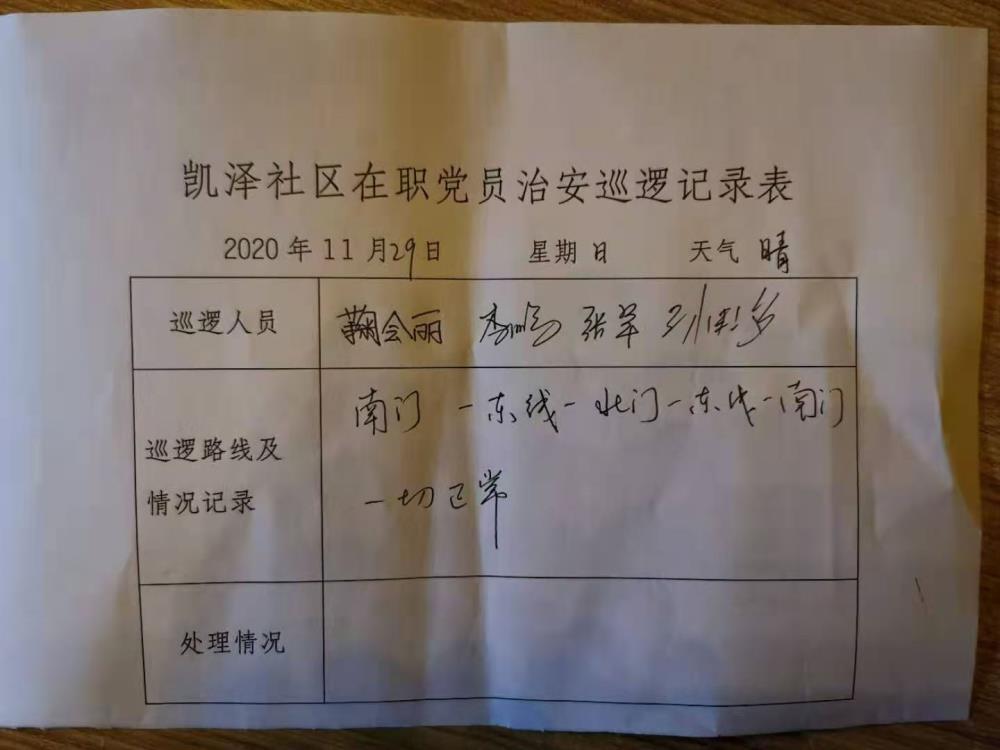 凯泽社区在职党员治安巡逻记录表
2020年11月29日 星期日 天气 晴
巡逻人员 鞠会丽 张军
巡逻路线及情况记录
南门-东线-北门-东线-南门
一切正常
处理情况